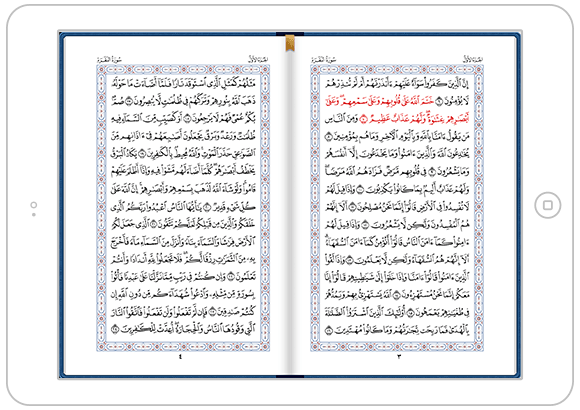 الجزء الأول سورة البقرة
إِنَّ ٱلَّذِينَ كَفَرُوا۟ سَوَآءٌ عَلَيْهِمْ ءَأَنذَرْتَهُمْ أَمْ لَمْ تُنذِرْهُمْ
لَا يُؤْمِنُونَ ٦ خَتَمَ ٱللَّهُ عَلَىٰ قُلُوبِهِمْ وَعَلَىٰ سَمْعِهِمْ ۖ وَعَلَىٰٓ
أَبْصَٰرِهِمْ غِشَٰوَةٌ ۖ وَلَهُمْ عَذَابٌ عَظِيمٌ ٧ وَمِنَ ٱلنَّاسِ
مَن يَقُولُ ءَامَنَّا بِٱللَّهِ وَبِٱلْيَوْمِ ٱلْءَاخِرِ وَمَا هُم بِمُؤْمِنِينَ ٨
يُخَٰدِعُونَ ٱللَّهَ وَٱلَّذِينَ ءَامَنُوا۟ وَمَا يَخْدَعُونَ إِلَّآ أَنفُسَهُمْ
وَمَا يَشْعُرُونَ ٩ فِى قُلُوبِهِم مَّرَضٌ فَزَادَهُمُ ٱللَّهُ مَرَضًا ۖ
وَلَهُمْ عَذَابٌ أَلِيمٌۢ بِمَا كَانُوا۟ يَكْذِبُونَ ١٠ وَإِذَا قِيلَ لَهُمْ
لَا تُفْسِدُوا۟ فِى ٱلْأَرْضِ قَالُوٓا۟ إِنَّمَا نَحْنُ مُصْلِحُونَ ١١ أَلَآ إِنَّهُمْ
هُمُ ٱلْمُفْسِدُونَ وَلَٰكِن لَّا يَشْعُرُونَ ١٢ وَإِذَا قِيلَ لَهُمْ
ءَامِنُوا۟ كَمَآ ءَامَنَ ٱلنَّاسُ قَالُوٓا۟ أَنُؤْمِنُ كَمَآ ءَامَنَ ٱلسُّفَهَآءُ ۗ
أَلَآ إِنَّهُمْ هُمُ ٱلسُّفَهَآءُ وَلَٰكِن لَّا يَعْلَمُونَ ١٣ وَإِذَا لَقُوا۟
ٱلَّذِينَ ءَامَنُوا۟ قَالُوٓا۟ ءَامَنَّا وَإِذَا خَلَوْا۟ إِلَىٰ شَيَٰطِينِهِمْ قَالُوٓا۟ إِنَّا
مَعَكُمْ إِنَّمَا نَحْنُ مُسْتَهْزِءُونَ ١٤ ٱللَّهُ يَسْتَهْزِئُ بِهِمْ وَيَمُدُّهُمْ
فِى طُغْيَٰنِهِمْ يَعْمَهُونَ ١٥ أُو۟لَٰٓئِكَ ٱلَّذِينَ ٱشْتَرَوُا۟ ٱلضَّلَٰلَةَ
بِٱلْهُدَىٰ فَمَا رَبِحَت تِّجَٰرَتُهُمْ وَمَا كَانُوا۟ مُهْتَدِينَ ١٦
٣
الجزء الأول سورة البقرة
مَثَلُهُمْ كَمَثَلِ ٱلَّذِى ٱسْتَوْقَدَ نَارًا فَلَمَّآ أَضَآءَتْ مَا حَوْلَهُۥ
ذَهَبَ ٱللَّهُ بِنُورِهِمْ وَتَرَكَهُمْ فِى ظُلُمَٰتٍ لَّا يُبْصِرُونَ ١٧ صُمٌّۢ
بُكْمٌ عُمْىٌ فَهُمْ لَا يَرْجِعُونَ ١٨ أَوْ كَصَيِّبٍ مِّنَ ٱلسَّمَآءِ فِيهِ
ظُلُمَٰتٌ وَرَعْدٌ وَبَرْقٌ يَجْعَلُونَ أَصَٰبِعَهُمْ فِىٓ ءَاذَانِهِم مِّنَ
ٱلصَّوَٰعِقِ حَذَرَ ٱلْمَوْتِ ۚ وَٱللَّهُ مُحِيطٌۢ بِٱلْكَٰفِرِينَ ١٩ يَكَادُ ٱلْبَرْقُ
يَخْطَفُ أَبْصَٰرَهُمْ ۖ كُلَّمَآ أَضَآءَ لَهُم مَّشَوْا۟ فِيهِ وَإِذَآ أَظْلَمَ عَلَيْهِمْ
قَامُوا۟ ۚ وَلَوْ شَآءَ ٱللَّهُ لَذَهَبَ بِسَمْعِهِمْ وَأَبْصَٰرِهِمْ ۚ إِنَّ ٱللَّهَ عَلَىٰ
كُلِّ شَىْءٍ قَدِيرٌ ٢٠ يَٰٓأَيُّهَا ٱلنَّاسُ ٱعْبُدُوا۟ رَبَّكُمُ ٱلَّذِى
خَلَقَكُمْ وَٱلَّذِينَ مِن قَبْلِكُمْ لَعَلَّكُمْ تَتَّقُونَ ٢١ ٱلَّذِى جَعَلَ لَكُمُ
ٱلْأَرْضَ فِرَٰشًا وَٱلسَّمَآءَ بِنَآءً وَأَنزَلَ مِنَ ٱلسَّمَآءِ مَآءً فَأَخْرَجَ
بِهِۦ مِنَ ٱلثَّمَرَٰتِ رِزْقًا لَّكُمْ ۖ فَلَا تَجْعَلُوا۟ لِلَّهِ أَندَادًا وَأَنتُمْ
تَعْلَمُونَ ٢٢ وَإِن كُنتُمْ فِى رَيْبٍ مِّمَّا نَزَّلْنَا عَلَىٰ عَبْدِنَا فَأْتُوا۟
بِسُورَةٍ مِّن مِّثْلِهِۦ وَٱدْعُوا۟ شُهَدَآءَكُم مِّن دُونِ ٱللَّهِ إِن
كُنتُمْ صَٰدِقِينَ ٢٣ فَإِن لَّمْ تَفْعَلُوا۟ وَلَن تَفْعَلُوا۟ فَٱتَّقُوا۟ ٱلنَّارَ
ٱلَّتِى وَقُودُهَا ٱلنَّاسُ وَٱلْحِجَارَةُ ۖ أُعِدَّتْ لِلْكَٰفِرِينَ ٢٤
٤